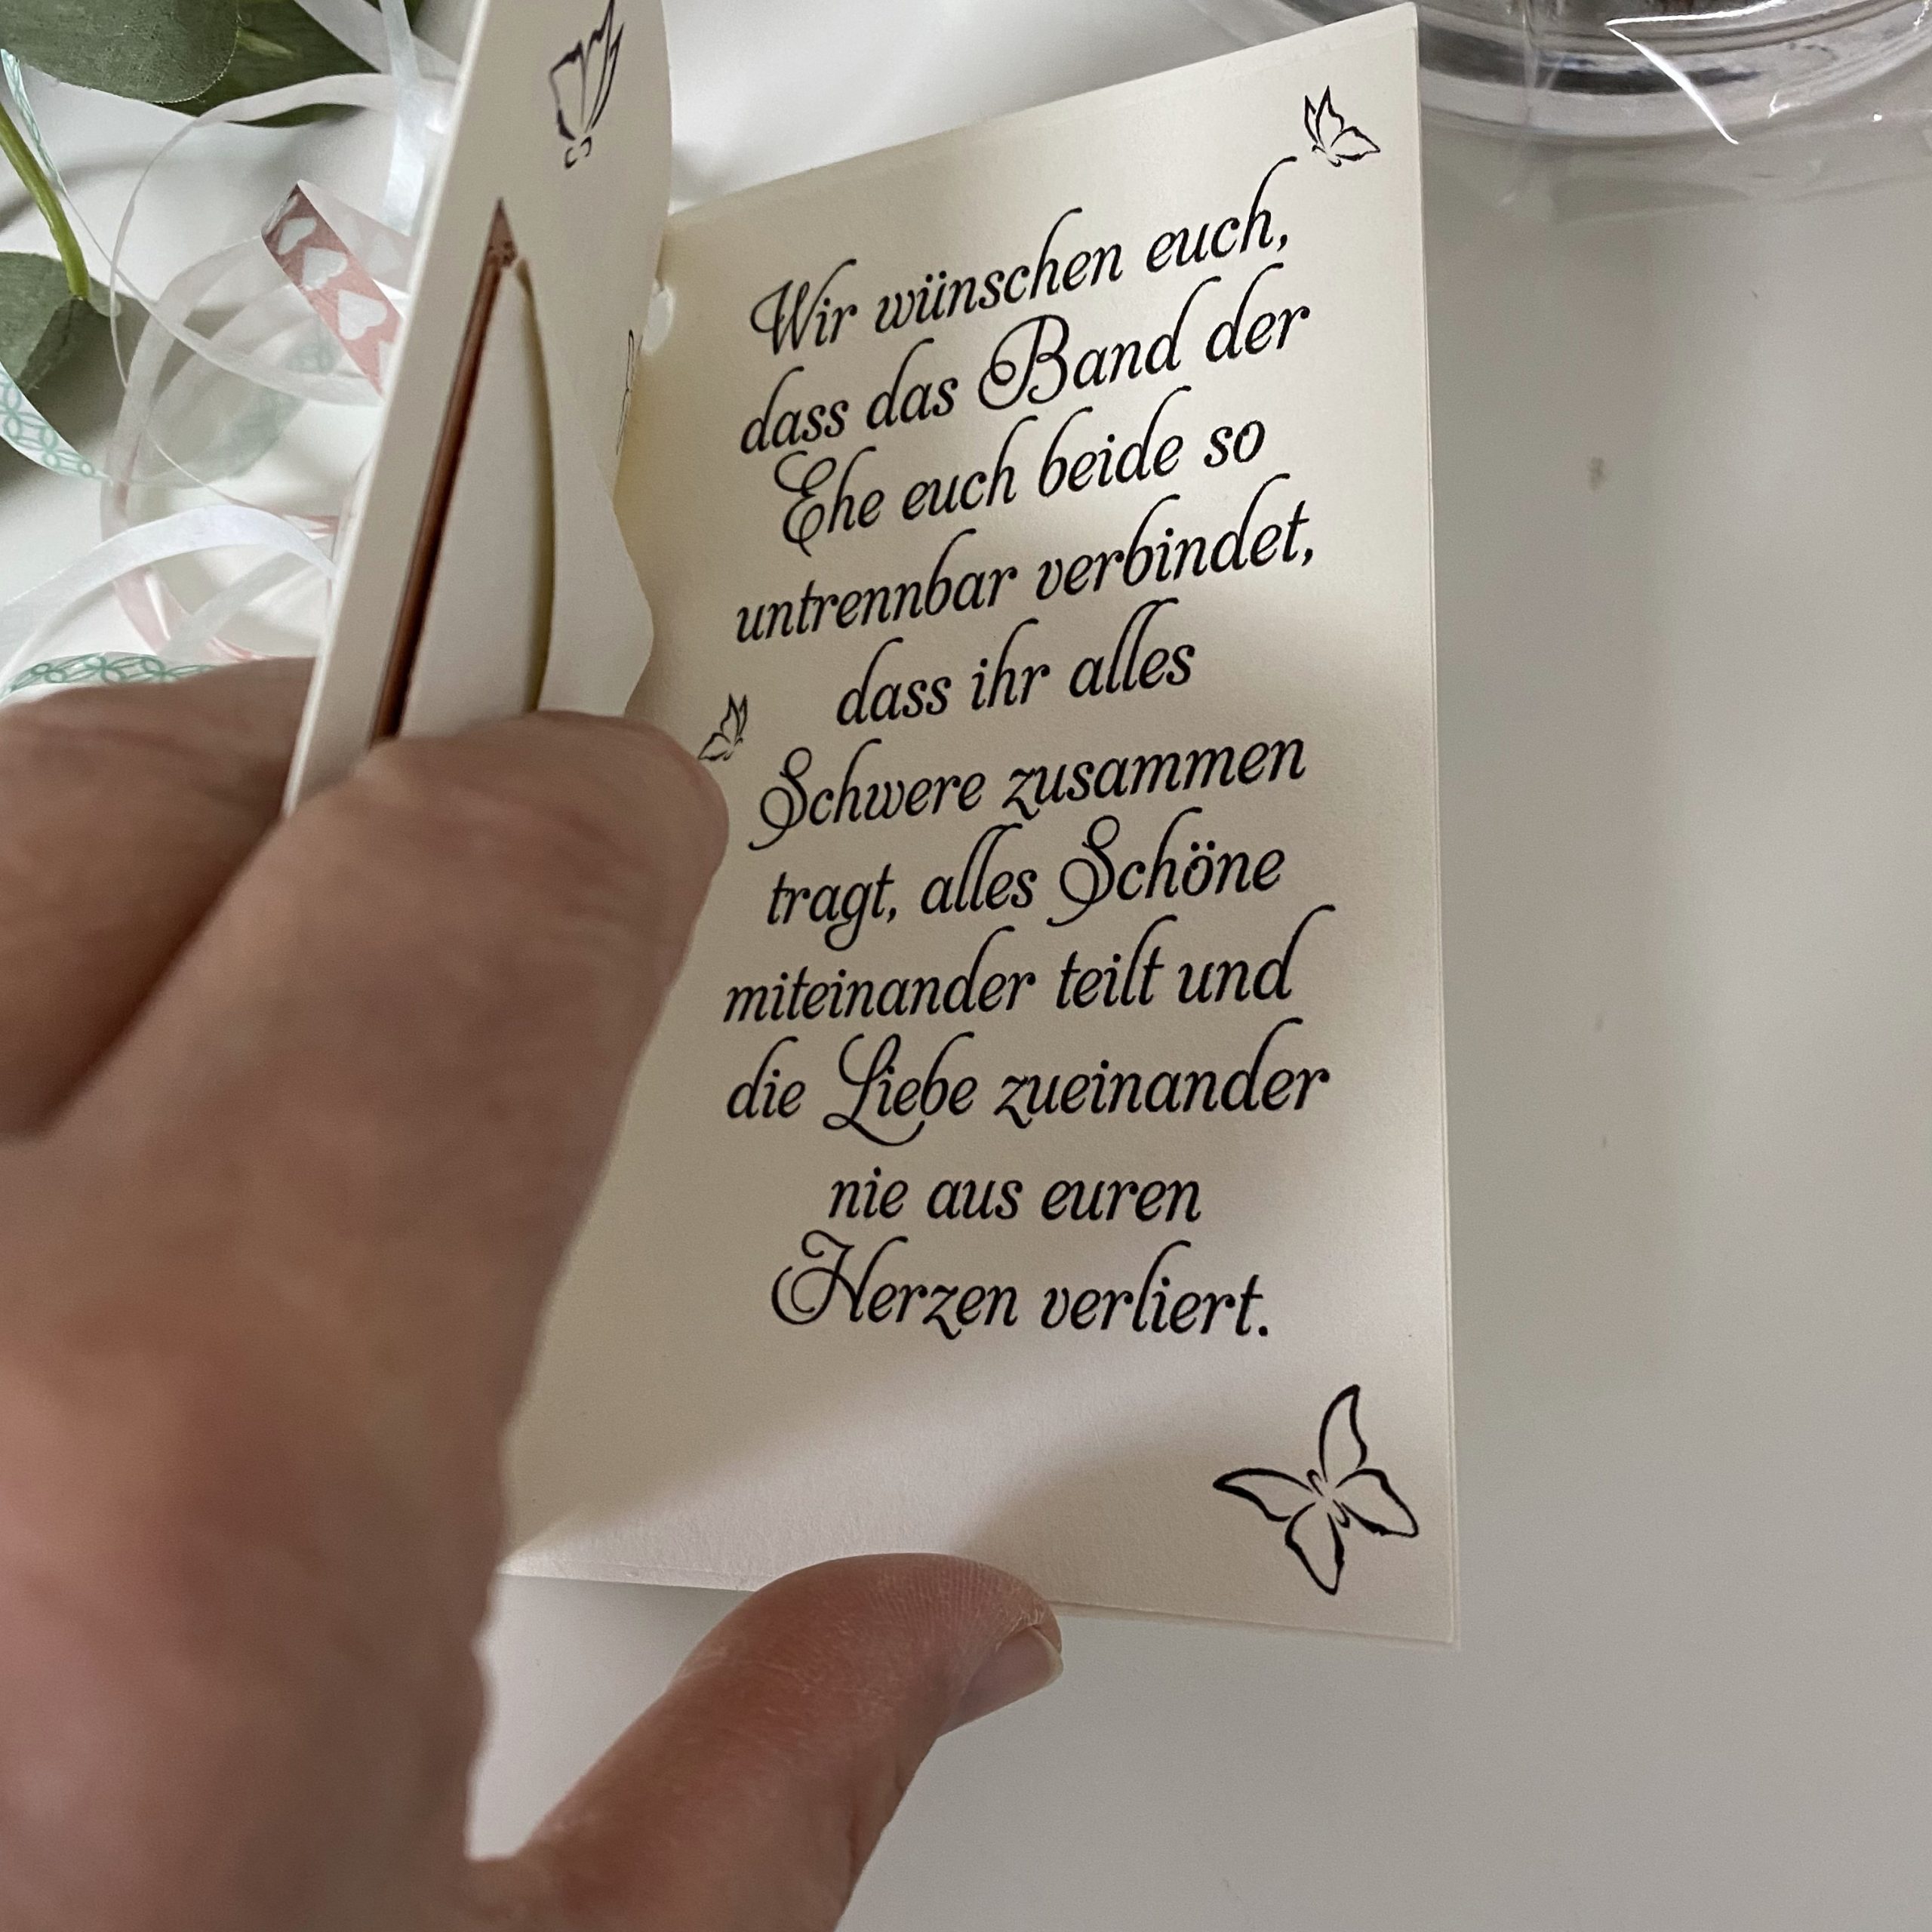 Wir wünschen euch,
dass das Band der
Ehe euch beide so
untrennbar verbindet,
dass ihr alles
Schwere zusammen
tragt, alles Schöne
miteinander teilt und
die Liebe zueinander
nie aus euren
Herzen verliert.